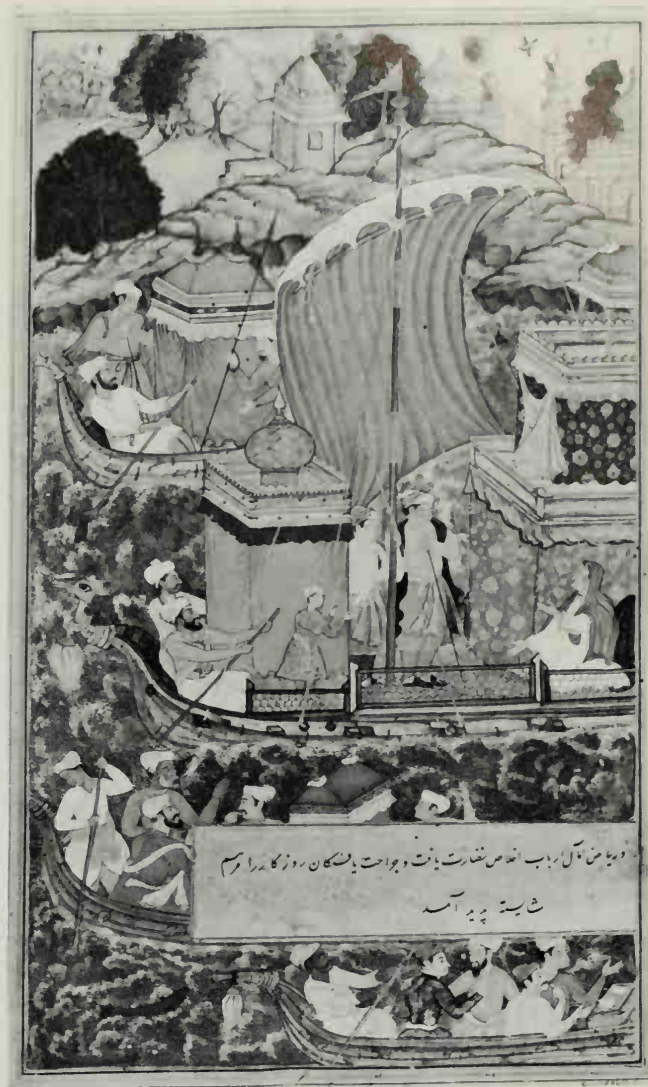 و ریاض آمال ارباب اخلاص نضارت یافت و جراحت یافتگان روزگار را مرهم
شایسته پدید آمد